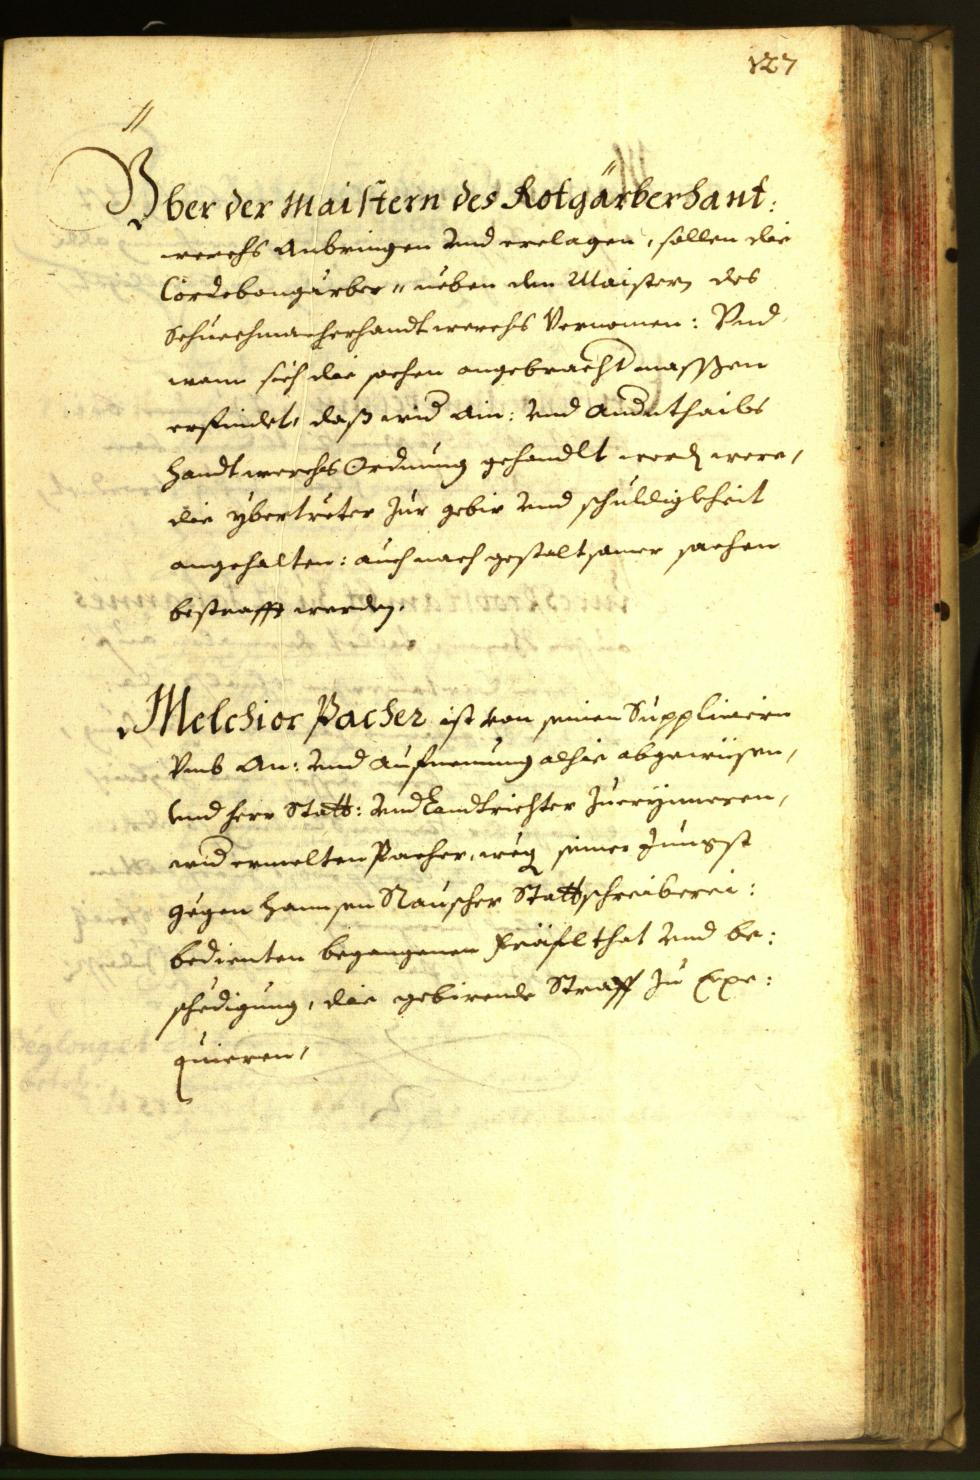 127
Über der Maistern des Rotgärberhant:
werchs Anbringen vnd erclagen, sollen die
Cordebongärber, neben den Maistern des
Schuechmacherhandtwerchs Vernomen: Vnd
wann sich die sachen angebracht massßen
erfindet, daß wid Ain: vnd Andnthails
Handtwerchs Ordnung gehandlt word were,
die ybertreter zur gebir vnd schuldigkheit
angehalten: auch nach gestaltsamer sachen
bestrafft werden.
Melchior Pacher ist von seinen Suppliciern
Vmb An: vnd Aufnemung alhie abgewisen,
vnd herr Statt: vnd Landtrichter zuerynneren,
wid ermelten Pacher, weg seiner Jüngst
gegen Hannsen Rauscher Stattschreiberei:
bedienten begangenen Fräfl that vnd be:
schedigung, die gebirende Straff zu Exe:
quieren,